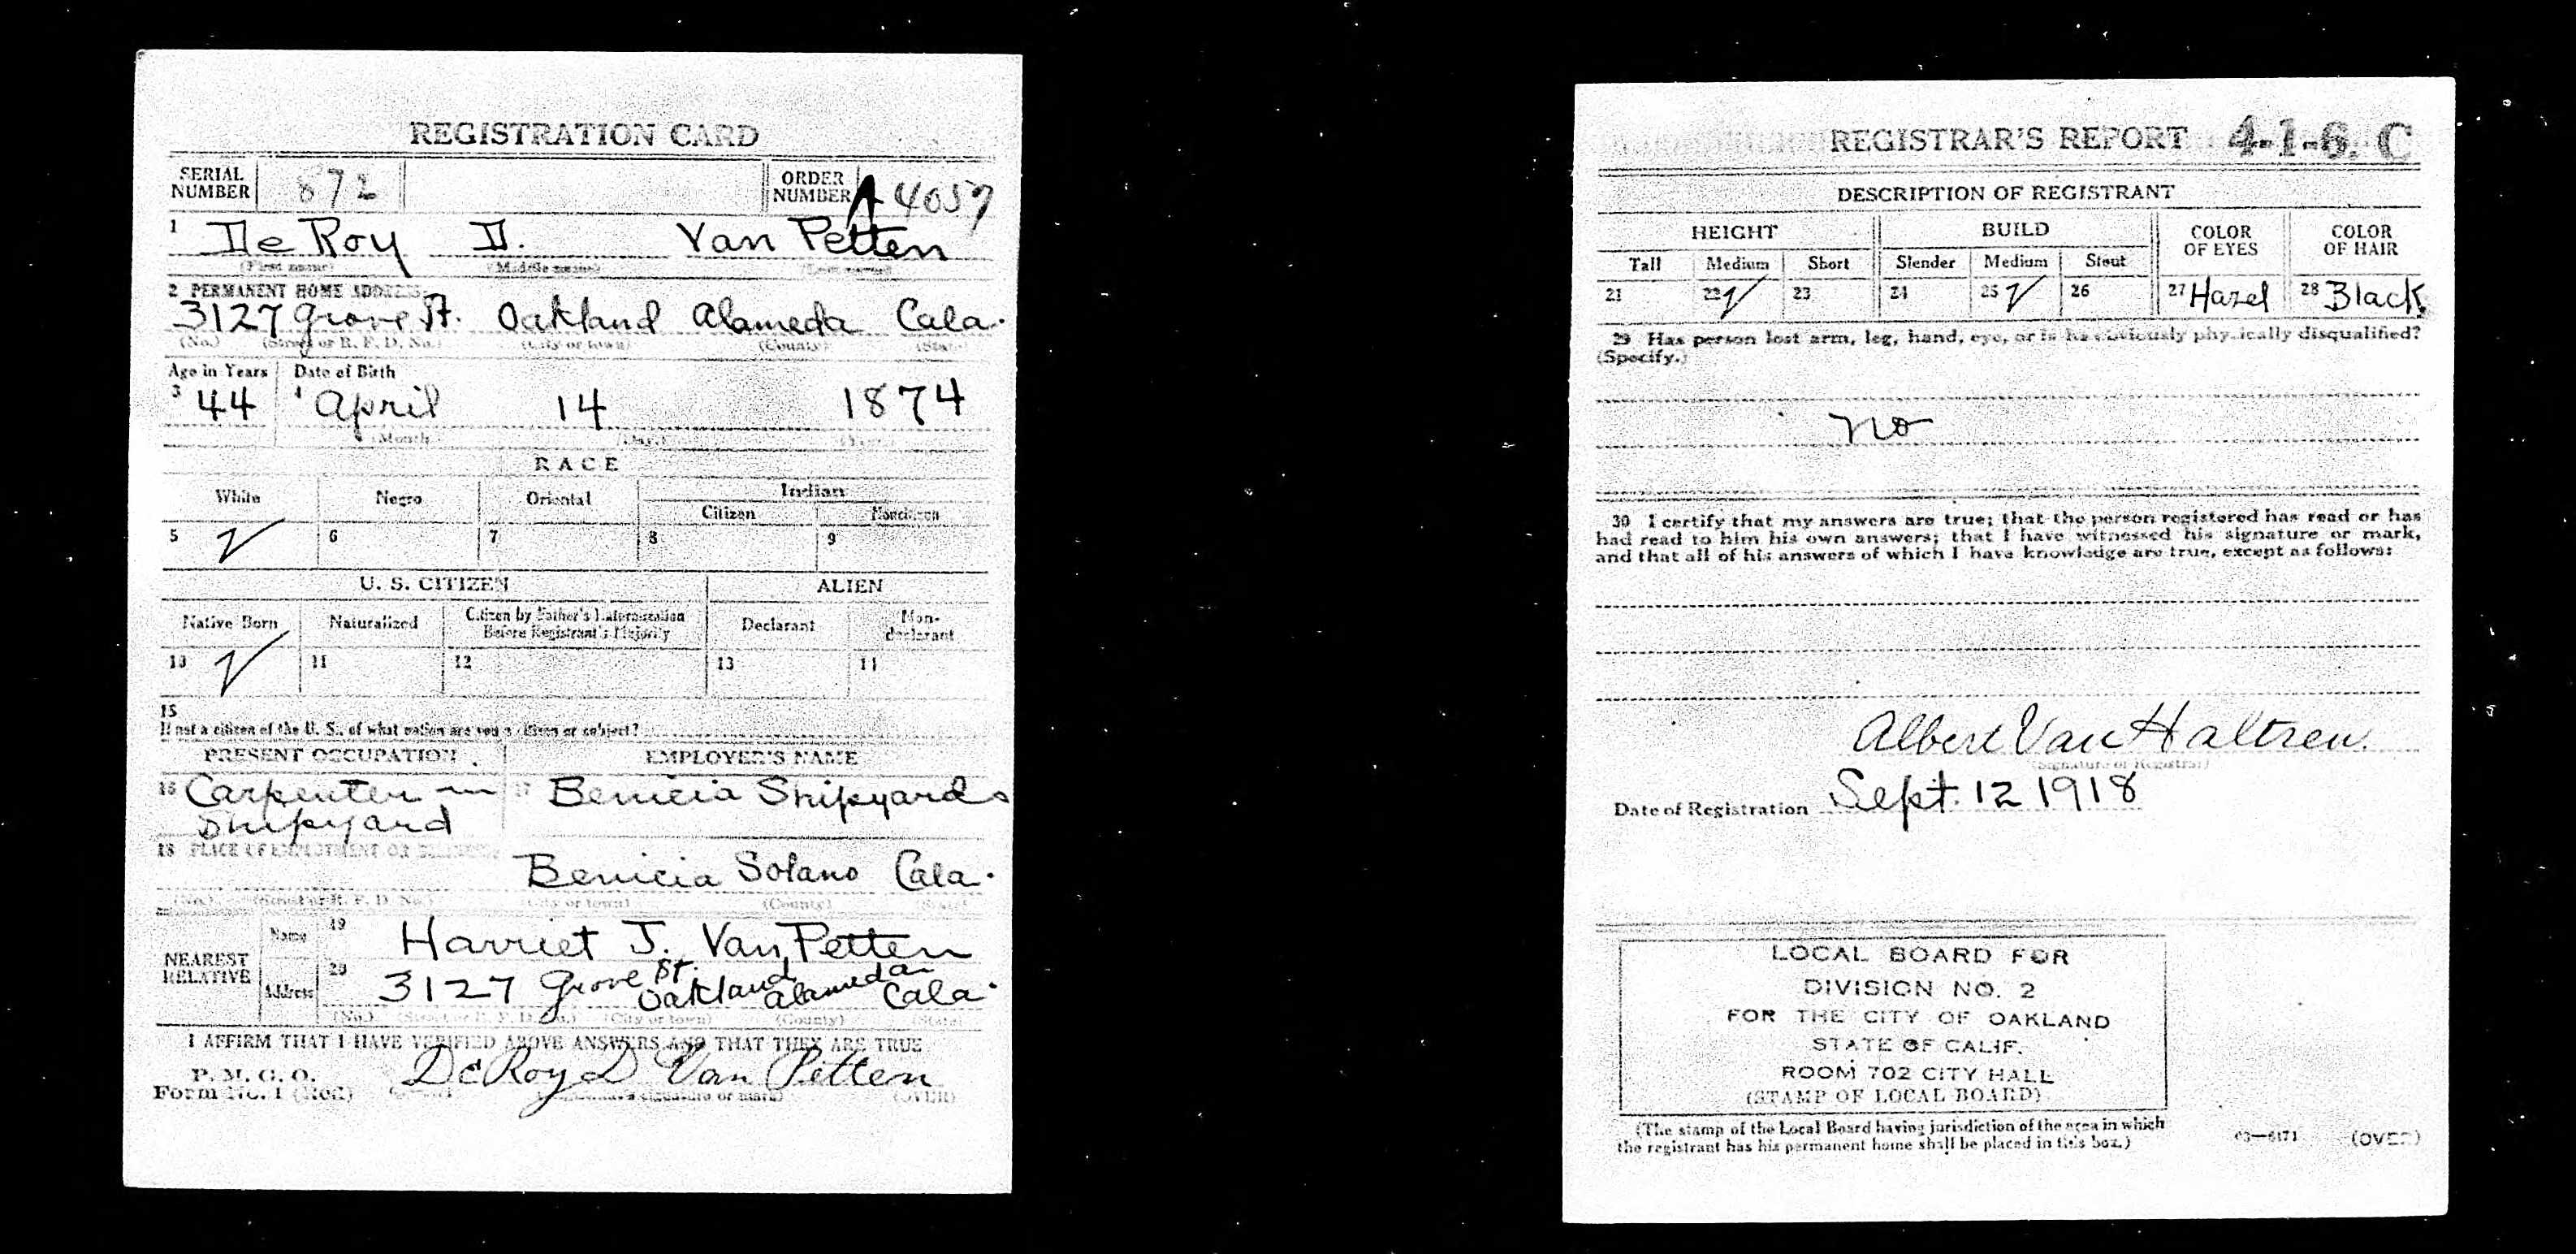 REGISTRATION CARD
SERIAL NUMBER 872 ORDER NUMBER A 4057
1 De Roy D. Van Petten
(First name) (Middle name) (Last name)
2 PERMANENT HOME ADDRESS:
3127 Grove St. Oakland Alameda Cala.
(No.) (Street or R. F. D. No.) (City or town) (County) (State)
Age in Years Date of Birth
3 44 4 April 14 1874
(Month) (Day) (Year)
RACE
White Negro Oriental Indian
Citizen Noncitizen
5 ✓ 6 7 8 9
U. S. CITIZEN ALIEN
Native Born Naturalized Citizen by Father's Naturalization Before Registrant's Majority Declarant Non-declarant
10 ✓ 11 12 13 14
15
If not a citizen of the U. S., of what nation are you a citizen or subject?
PRESENT OCCUPATION EMPLOYER'S NAME
16 Carpenter in 17 Benicia Shipyards
Shipyard
18 PLACE OF EMPLOYMENT OR BUSINESS:
Benicia Solano Cala.
(No.) (Street or R. F. D. No.) (City or town) (County) (State)
NEAREST RELATIVE
Name 19 Harriet J. Van Petten
Address 20 3127 Grove St. Oakland Alameda Cala.
(No.) (Street or R. F. D. No.) (City or town) (County) (State)
I AFFIRM THAT I HAVE VERIFIED ABOVE ANSWERS AND THAT THEY ARE TRUE
P. M. G. O.
Form No. 1 (Red) DeRoy D Van Petten
(Registrant's signature or mark) (OVER)
REGISTRAR'S REPORT 4-1-6. C
DESCRIPTION OF REGISTRANT
HEIGHT BUILD COLOR OF EYES COLOR OF HAIR
Tall Medium Short Slender Medium Stout
21 22 ✓ 23 24 25 ✓ 26 27 Hazel 28 Black
29 Has person lost arm, leg, hand, eye, or is he obviously physically disqualified?
(Specify.)
no
30 I certify that my answers are true; that the person registered has read or has
had read to him his own answers; that I have witnessed his signature or mark,
and that all of his answers of which I have knowledge are true, except as follows:
Albert Van Haltren.
(Signature of Registrar)
Date of Registration Sept. 12 1918
LOCAL BOARD FOR
DIVISION NO. 2
FOR THE CITY OF OAKLAND
STATE OF CALIF.
ROOM 702 CITY HALL
(STAMP OF LOCAL BOARD)
(The stamp of the Local Board having jurisdiction of the area in which
the registrant has his permanent home shall be placed in this box.)
03—6171 (OVER)